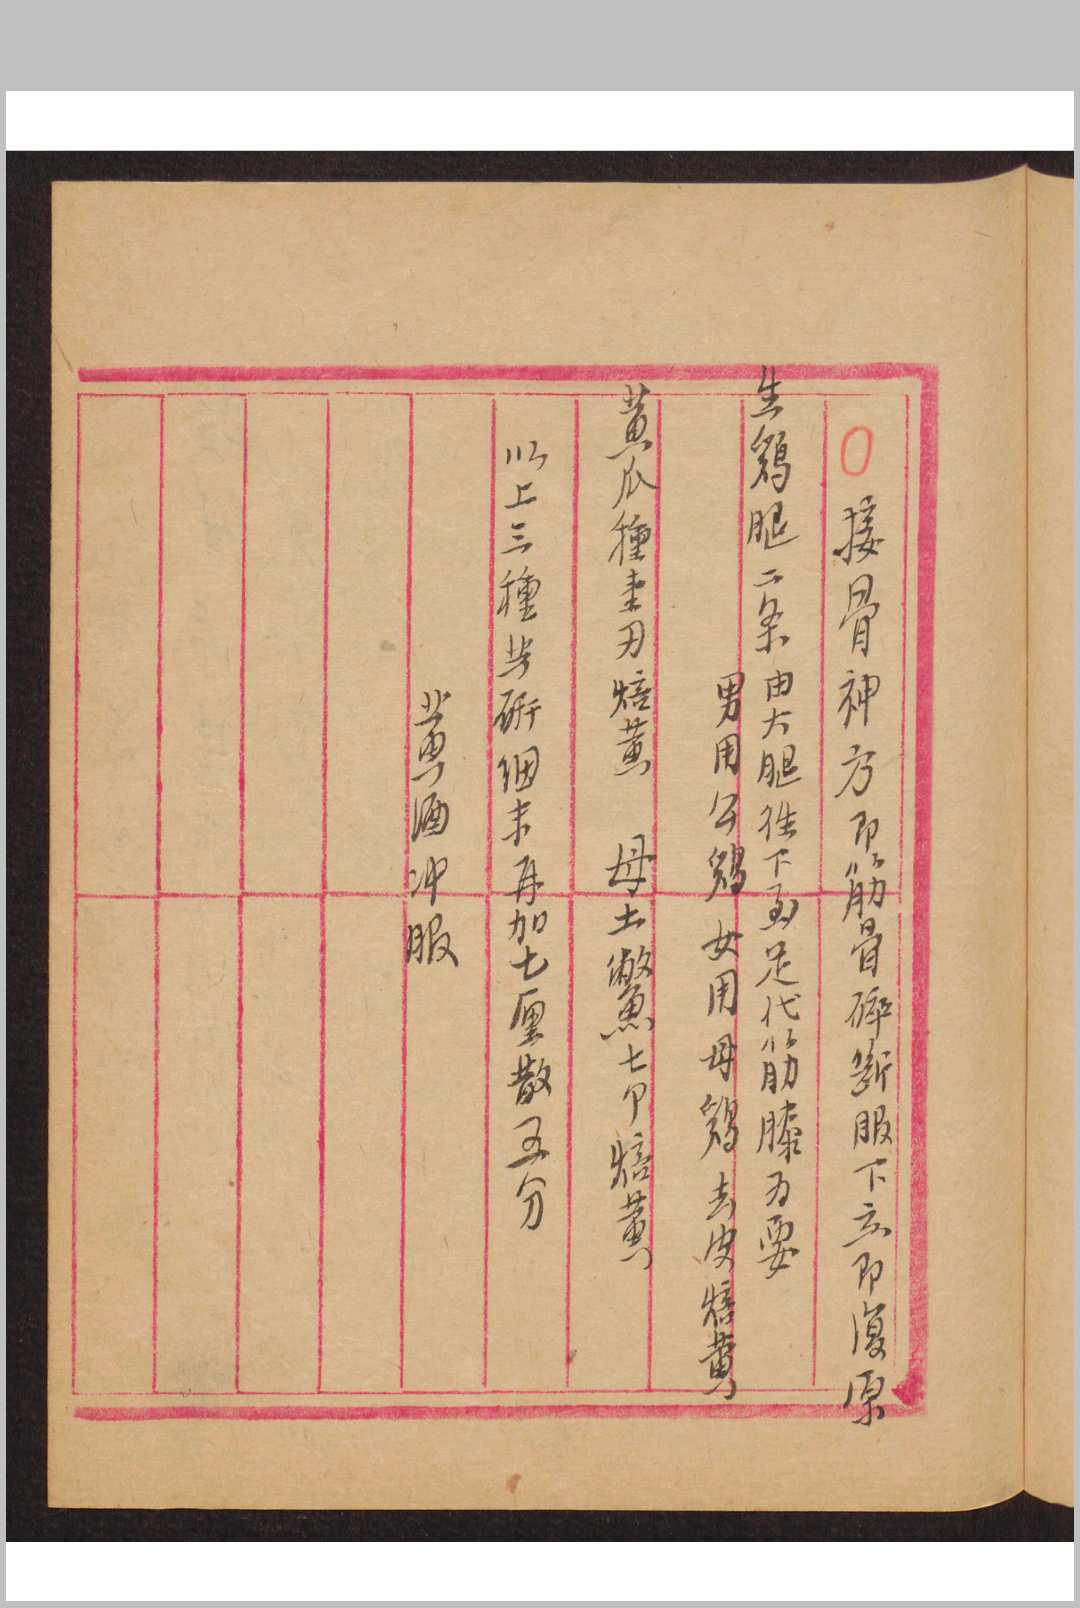 ○接骨神方即筋骨碎断服下立即復原
生鷄腿二条由大腿往下至足代筋膝为要
男用公鷄女用母鷄去皮焙黄
黄瓜種壹刃焙黄 母土鱉七个焙黄
以上三種共研细末再加七厘散五分
黄酒冲服